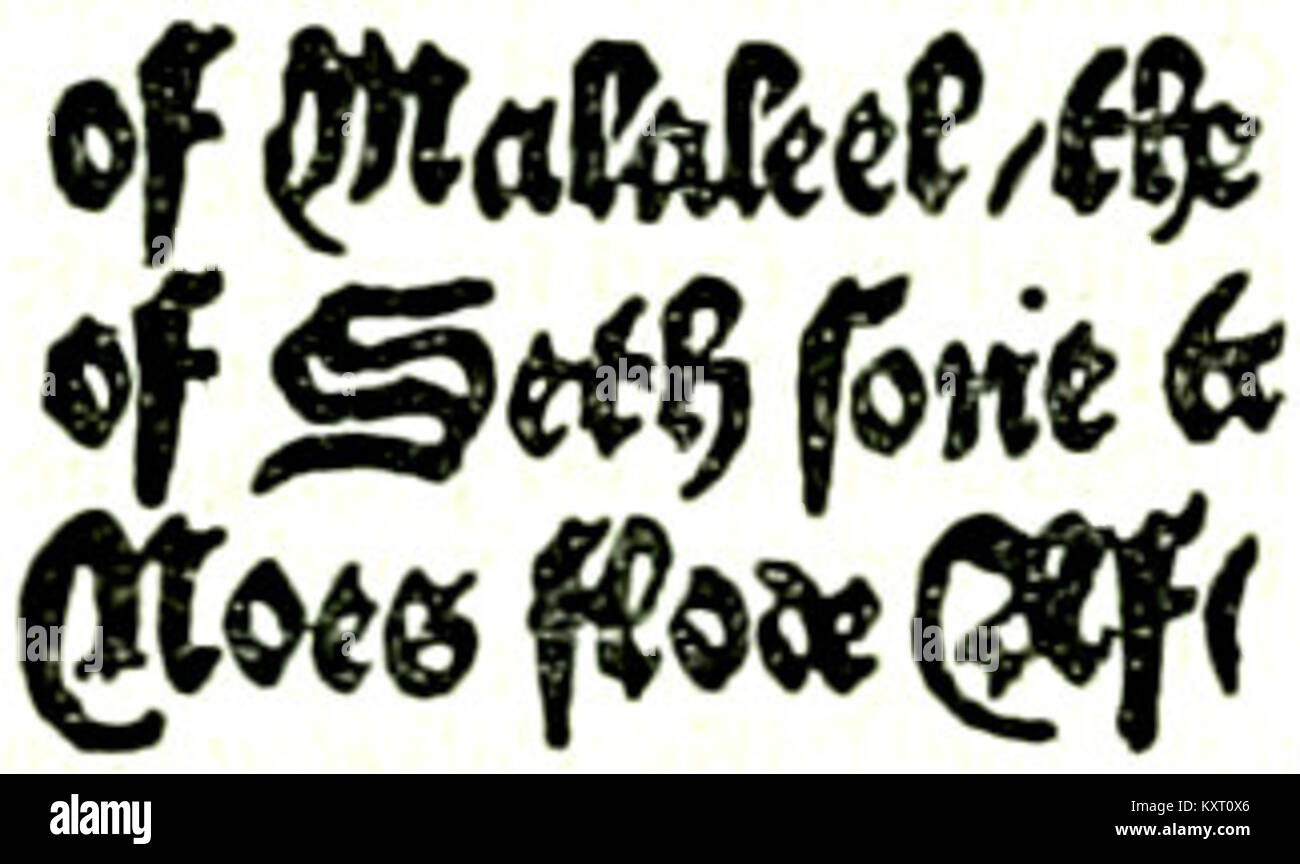 of Malaleel / the
of Seth sone &
Noes flode
alamy
Image ID: KXT0X6
www.alamy.com